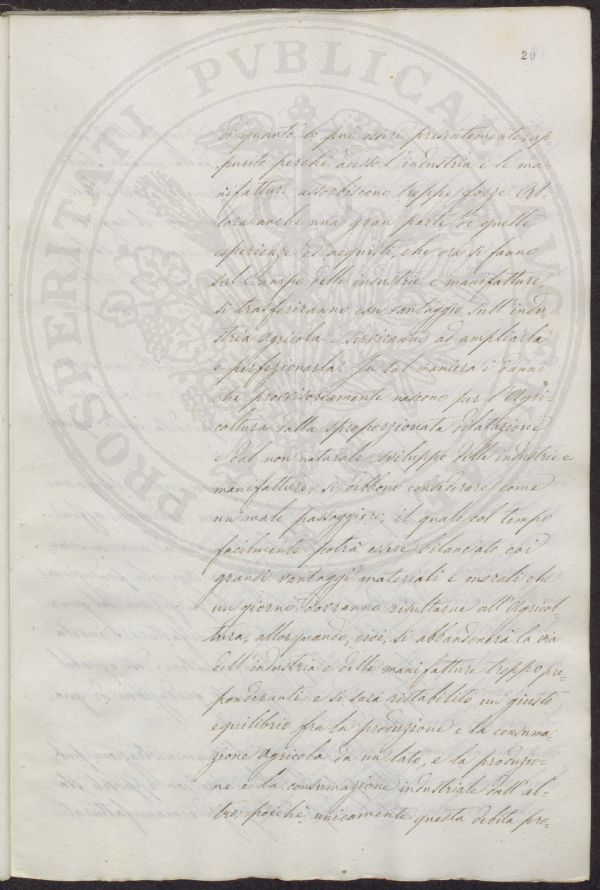 20
di quanto lo può essere presentemente, ap-
punto perchè adesso l'industria e le ma-
nifatture assorbiscono troppe forze. Al-
lora anche una gran parte di quelle
esperienze ed acquisti, che ora si fanno
sul Campo delle industrie e manifatture,
si trasferiranno con vantaggio sull'indu-
stria agricola e serviranno ad ampliarla
e perfezionarla. In tal maniera i danni
che provvisoriamente nascono per l'Agri-
coltura dalla sproporzionata dilatazione
e dal non naturale sviluppo delle industrie e
manifatture, si debbono considerare come
un male passaggiero, il quale col tempo
facilmente potrà essere bilanciato coi
grandi vantaggi materiali e morali che
un giorno dovranno risultarne all'Agricol-
tura, allorquando, cioè, si abbandonerà la via
dell'industria e delle manifatture troppo pre-
ponderanti e si sarà ristabilito un giusto
equilibrio fra la produzione e la consuma-
zione agricola da un lato, e la produzio-
ne e la consumazione industriale dall'al-
tro; poichè unicamente questa debita pro-
PROSPERITATI PVBLICAE